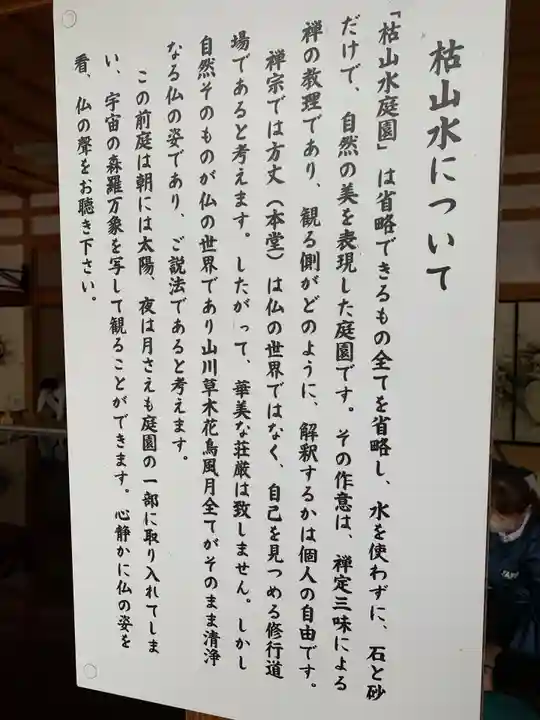 枯山水について
「枯山水庭園」は省略できるもの全てを省略し、水を使わずに、石と砂
だけで、自然の美を表現した庭園です。その作意は、禅定三昧による
禅の教理であり、観る側がどのように、解釈するかは個人の自由です。
禅宗では方丈（本堂）は仏の世界ではなく、自己を見つめる修行道
場であると考えます。したがって、華美な荘厳は致しません。しかし
自然そのものが仏の世界であり山川草木花鳥風月全てがそのまま清浄
なる仏の姿であり、ご説法であると考えます。
この前庭は朝には太陽、夜は月さえも庭園の一部に取り入れてしま
い、宇宙の森羅万象を写して観ることができます。心静かに仏の姿を
看、仏の聲をお聴き下さい。